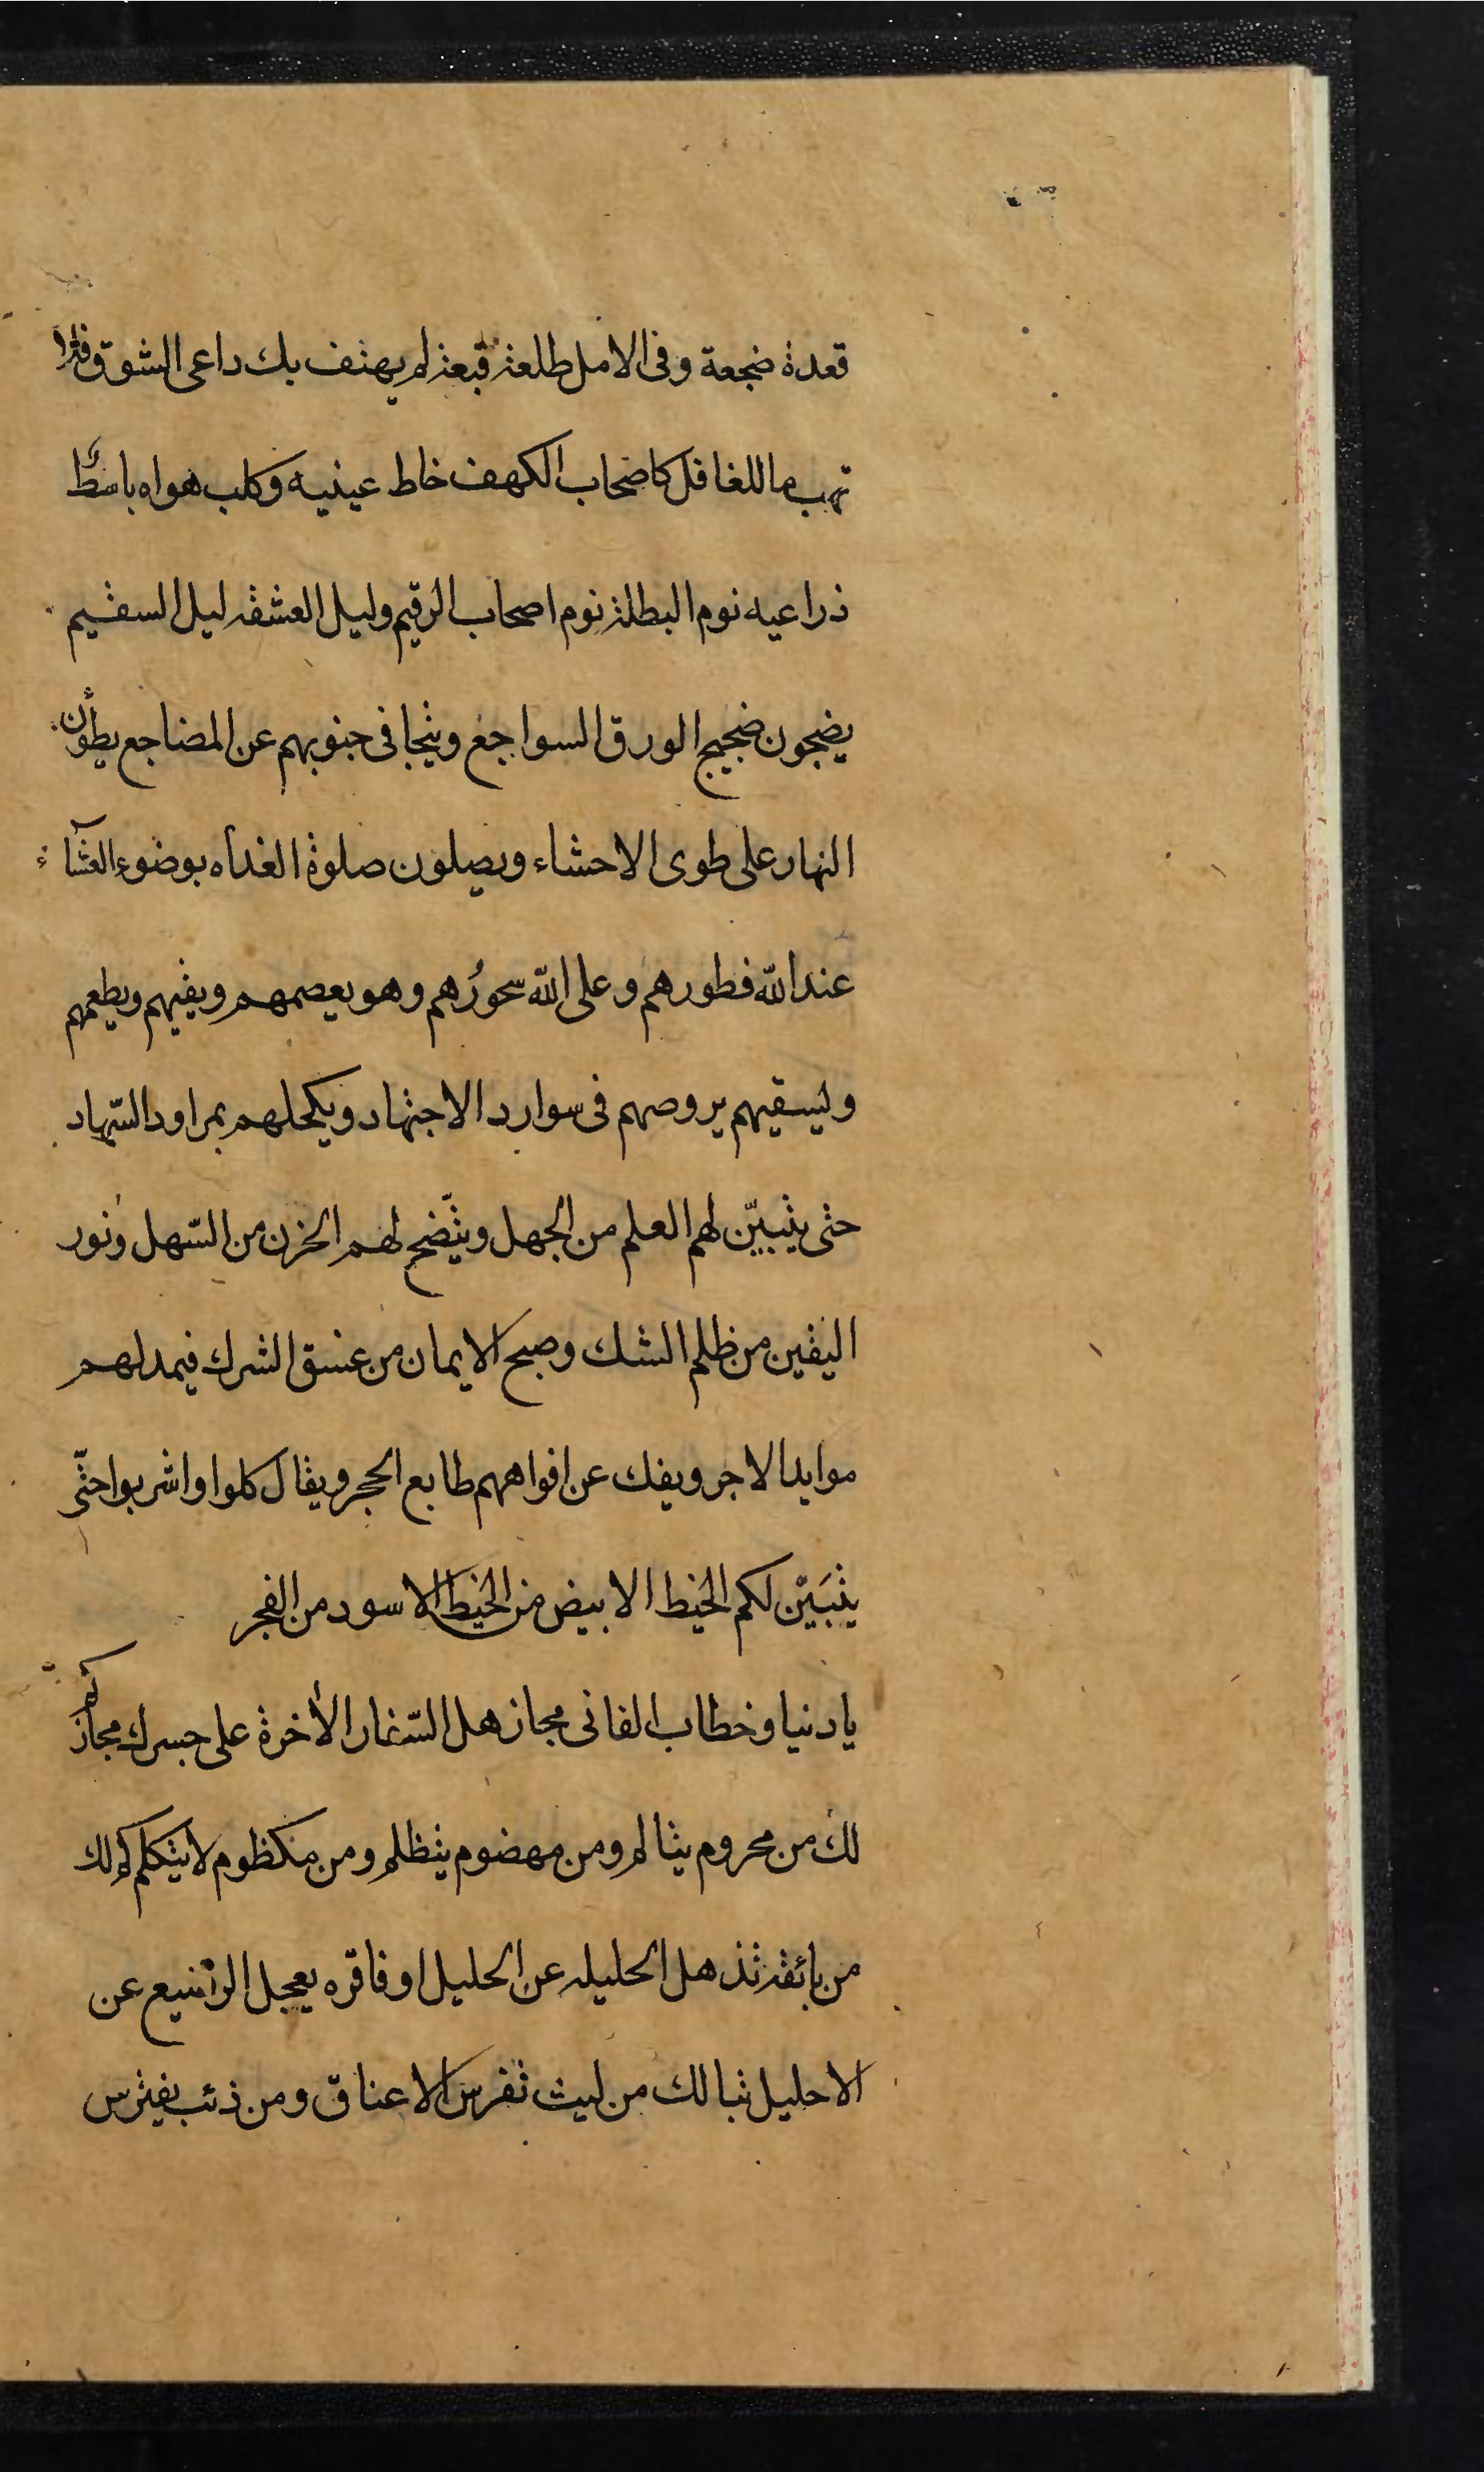 قعدة ضجعة وفى الامل طلعة قبعة لم يهتف بك داعى الشوق فترا
تهب ما للغافل كاصحاب الكهف خاط عينيه وكلب هواه باسط
ذراعيه نوم البطلة نوم اصحاب الرقيم وليل العشقه ليل السقيم
يضجون ضجيج الورق السواجع ويتجافى جنوبهم عن المضاجع يطوٰن
النهار على طوى الاحشاء ويصلون صلوة الغداه بوضوء العشآء
عند الله فطورهم وعلى الله سحورهم وهو يعصمهم ويقيهم ويطعمهم
وليسقيهم يروصهم فى سوارد الاجتهاد ويكحلهم بمراود السّهاد
حتى يتبيّن لهم العلم من الجهل ويتّضح لهم الحزن من السّهل ونور
اليقين من ظلم الشك وصبح الايمان من غسق الشرك فيمد لهم
موايد الاجر ويفك عن افواههم طابع الحجر ويقال كلوا واشربوا حتّى
يتبَيّن لكم الخيط الابيض من الخيط الاسود من الفجر
يا دنيا وخطاب الفانى مجاز هل السّفار الآخرة على جسرك مجاز كم
لك من محروم يتالم ومن مهضوم يتظلم ومن مكظوم لا يتكلم كم لك
من بائقة تذهل الحليله عن الحليل او فاقره يعجل الرضيع عن
الاحليل تبا لك من ليث تفرس الاعناق ومن ذئب يفترس